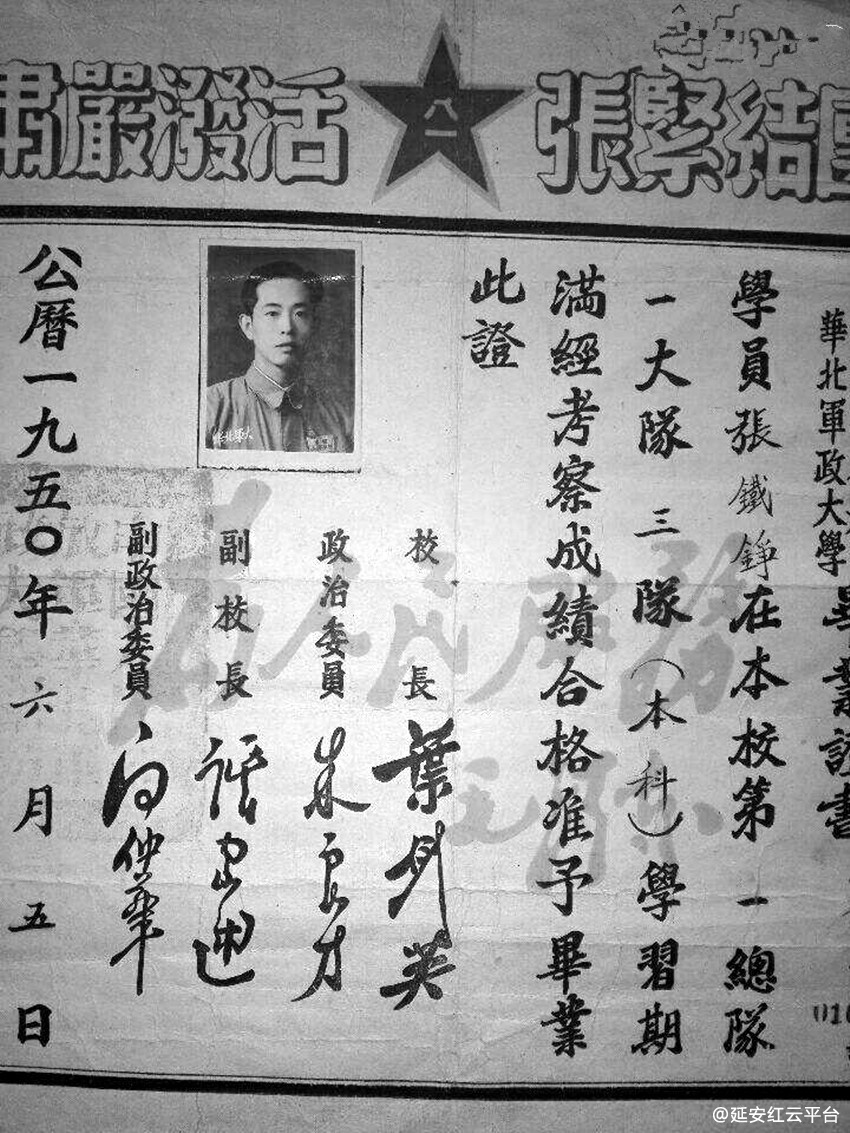 團結緊張
八一
活潑嚴肅
華北軍政大學
畢業證書
學員張鐵錚在本校第一總隊
一大隊三隊（本科）學習期
滿經考察成績合格准予畢業
此證
校長 葉剑英
政治委員 朱良才
副校長 譚家述
副政治委員 向仲華
公曆一九五〇年六月五日
為人民服務
@延安红云平台